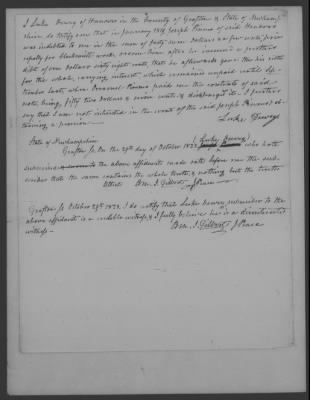 I Luke Dewey of Hanover in the County of Grafton & State of Newhamp-
shire do testify that in January 1819 Joseph Pinneo of said Hanover
was indebted to me in the sum of forty nine Dollars
for blacksmith work, and soon after he incurred a further
debt of one dollar sixty eight cents, that he afterwards gave me his note
for the whole, carrying interest, which remained unpaid until Sep-
tember last, when Pinneo paid me the contents of said
note being, fifty two dollars & seven cents & discharged it. I further
say that I am not interested in the event of the said Joseph Pinneo's ob-
taining a pension.
Luke Dewey
State of Newhampshire
Grafton Ss. On the 29th day of October 1823 Luke Dewey who hath
subscribed the above affidavit made oath before me the sub-
scriber that the same contains the whole truth & nothing but the truth
Attest Ben. J. Gilbert J Peace
Grafton Ss October 29th 1823. I do certify that Luke Dewey subscriber to the
above affidavit is a credible witness, & I fully believe he is a disinterested
witness -
Ben. J. Gilbert J Peace